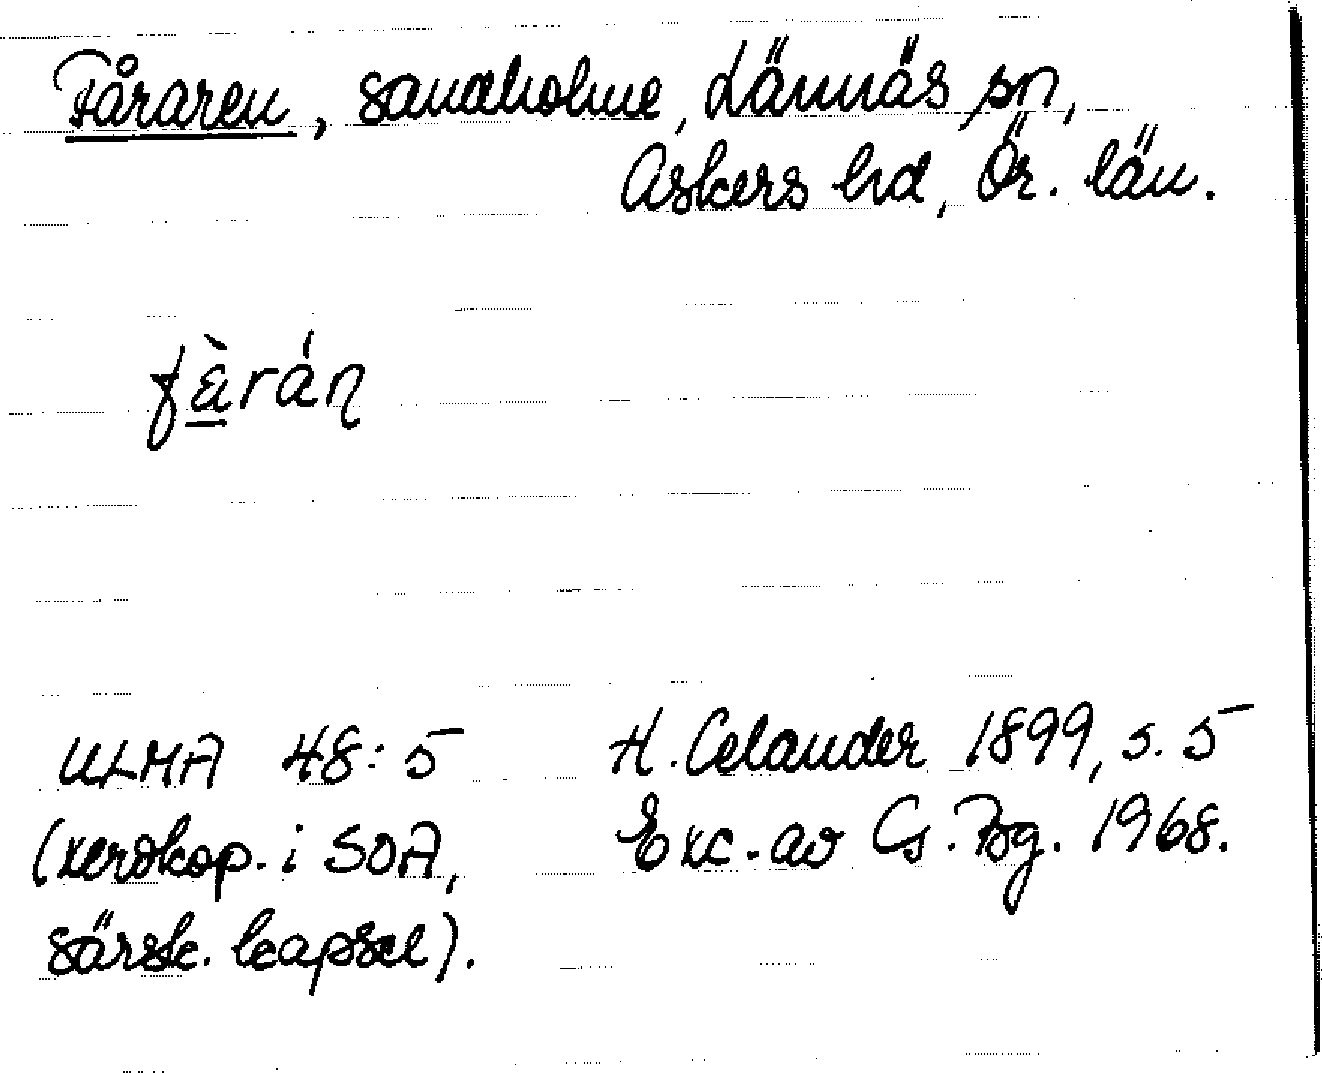 Fåraren, sandholme, Lännäs sn,
Askers hd, Ör. län.
fàrán
ULMA 48:5
(xeroxkop. i SOA,
särsk. kapsel).
H. Celander 1899, s. 5
Exc. av Cs. Bg. 1968.